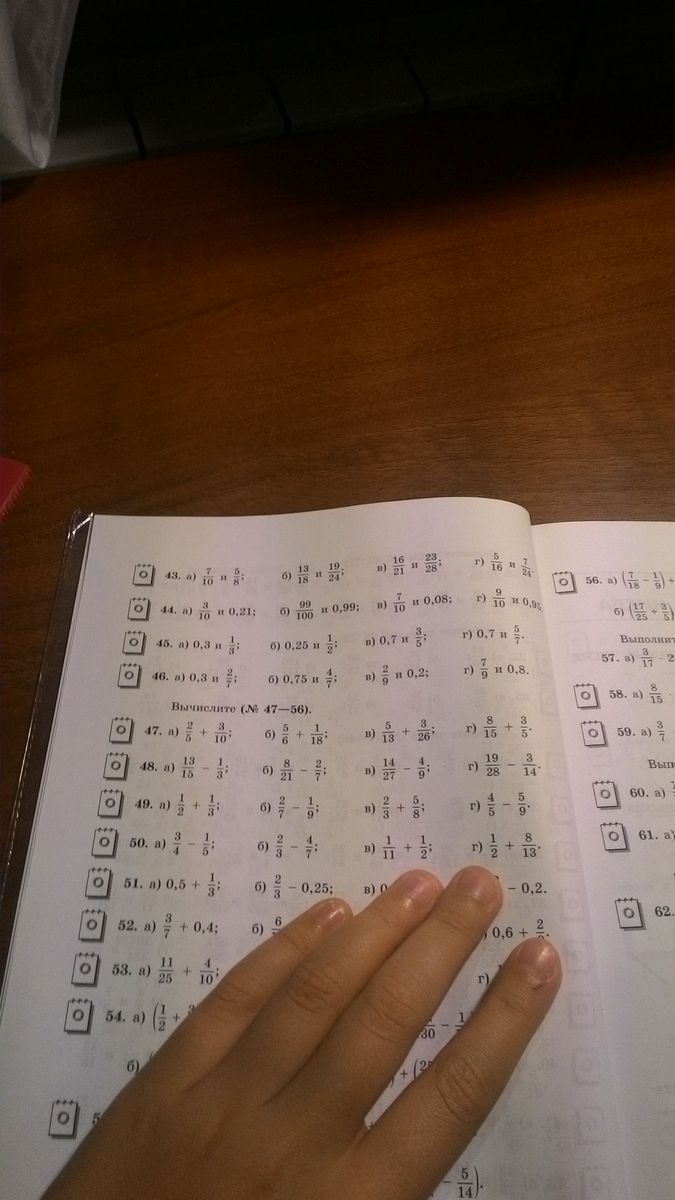 43. а) 7/10 и 5/8; б) 13/18 и 19/24; в) 16/21 и 23/28; г) 5/16 и 7/24.
44. а) 3/10 и 0,21; б) 99/100 и 0,99; в) 7/10 и 0,08; г) 9/10 и 0,95
45. а) 0,3 и 1/3; б) 0,25 и 1/2; в) 0,7 и 3/5; г) 0,7 и 5/7.
46. а) 0,3 и 2/7; б) 0,75 и 4/7; в) 2/9 и 0,2; г) 7/9 и 0,8.
Вычислите (№ 47—56).
47. а) 2/5 + 3/10; б) 5/6 + 1/18; в) 5/13 + 3/26; г) 8/15 + 3/5.
48. а) 13/15 − 1/3; б) 8/21 − 2/7; в) 14/27 − 4/9; г) 19/28 − 3/14.
49. а) 1/2 + 1/3; б) 2/7 − 1/9; в) 2/3 + 5/8; г) 4/5 − 5/9.
50. а) 3/4 − 1/5; б) 2/3 − 4/7; в) 1/11 + 1/2; г) 1/2 + 8/13.
51. а) 0,5 + 1/3; б) 2/3 − 0,25; в) 0 − 0,2.
52. а) 3/7 + 0,4; б) 6 0,6 + 2
53. а) 11/25 + 4/10; г)
54. а) (1/2 + /30 − 1
б) ( ) + (
− 5/14).
56. а) (7/18 − 1/9) +
б) (17/25 + 3/5)
57. а) 3/17 − 2
58. а) 8/15
59. а) 3/7
60. а)
61. а)
62.